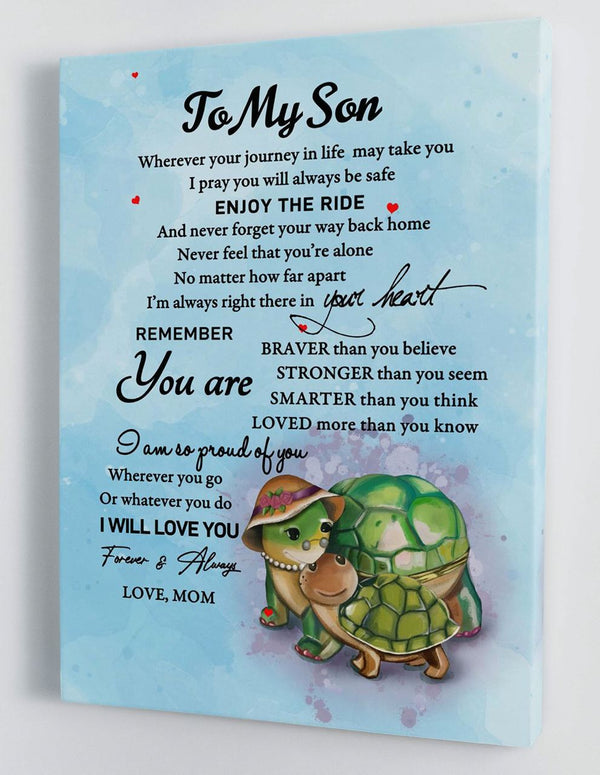 To My Son
Wherever your journey in life may take you
I pray you will always be safe
ENJOY THE RIDE
And never forget your way back home
Never feel that you're alone
No matter how far apart
I'm always right there in your heart
REMEMBER
You are
BRAVER than you believe
STRONGER than you seem
SMARTER than you think
LOVED more than you know
I am so proud of you
Wherever you go
Or whatever you do
I WILL LOVE YOU
Forever & Always
LOVE, MOM